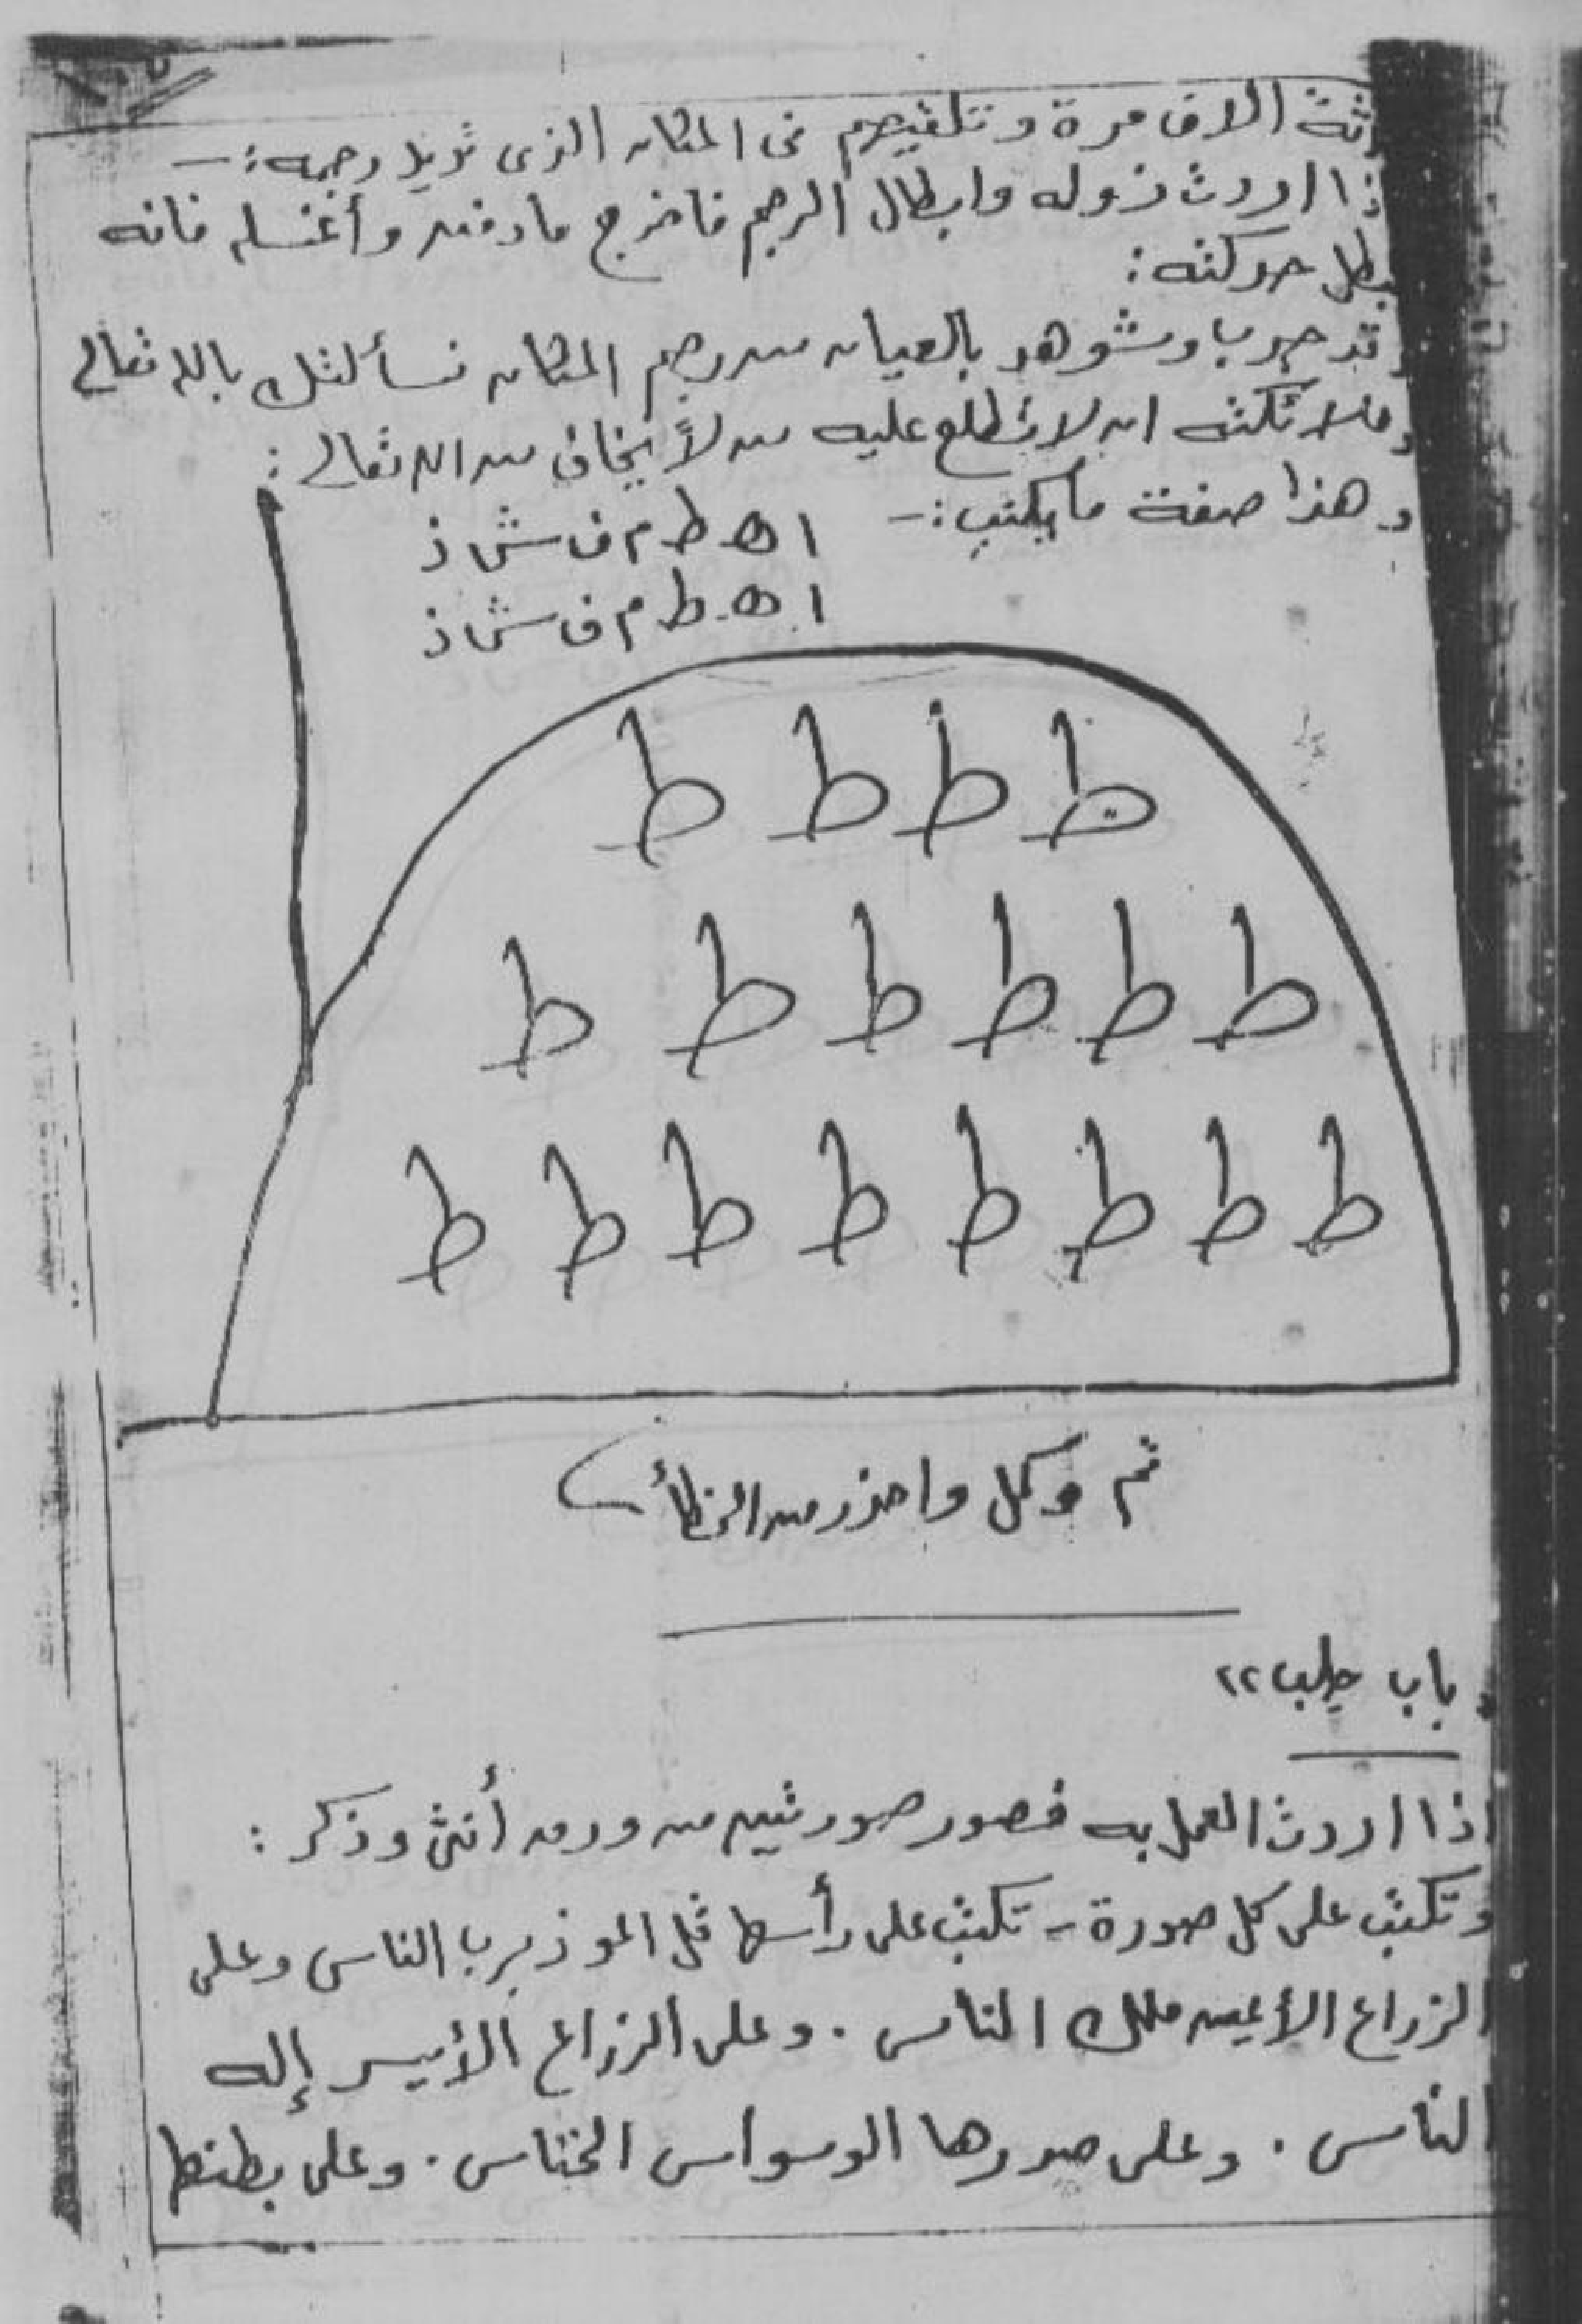 ثة الاف مرة وتلقيهم فى المكان الذى تريد رجمه :-
ذا اردت نزوله وابطال الرجم فاخرج مادفنته وأغسله فانه
بطل حركته :
وقد جرب وشوهد بالعيان من رجم المكان نسألتك بالله تعالى
وملائكته ان لا يطلع عليه من لاً يخاف من الله تعالى :
و هذا صفة ما يكتب :-
ا ه ط م ف ش ذ
ا ه ط م ف ش ذ
ط ط ط ط
ط ط ط ط ط ط
ط ط ط ط ط ط ط ط
ثم وكل واحذر من الخطأ
باب جلب ٢٢
اذا اردت العمل به فصور صورتين من ورق أنثى وذكر :
وتكتب على كل صورة - تكتب على رأسها قل اعوذ برب الناس وعلى
الزراع الأيمن ملك الناس . وعلى الزراع الأيسر إله
الناس . وعلى صدرها الوسواس الخناس . وعلى بطنها